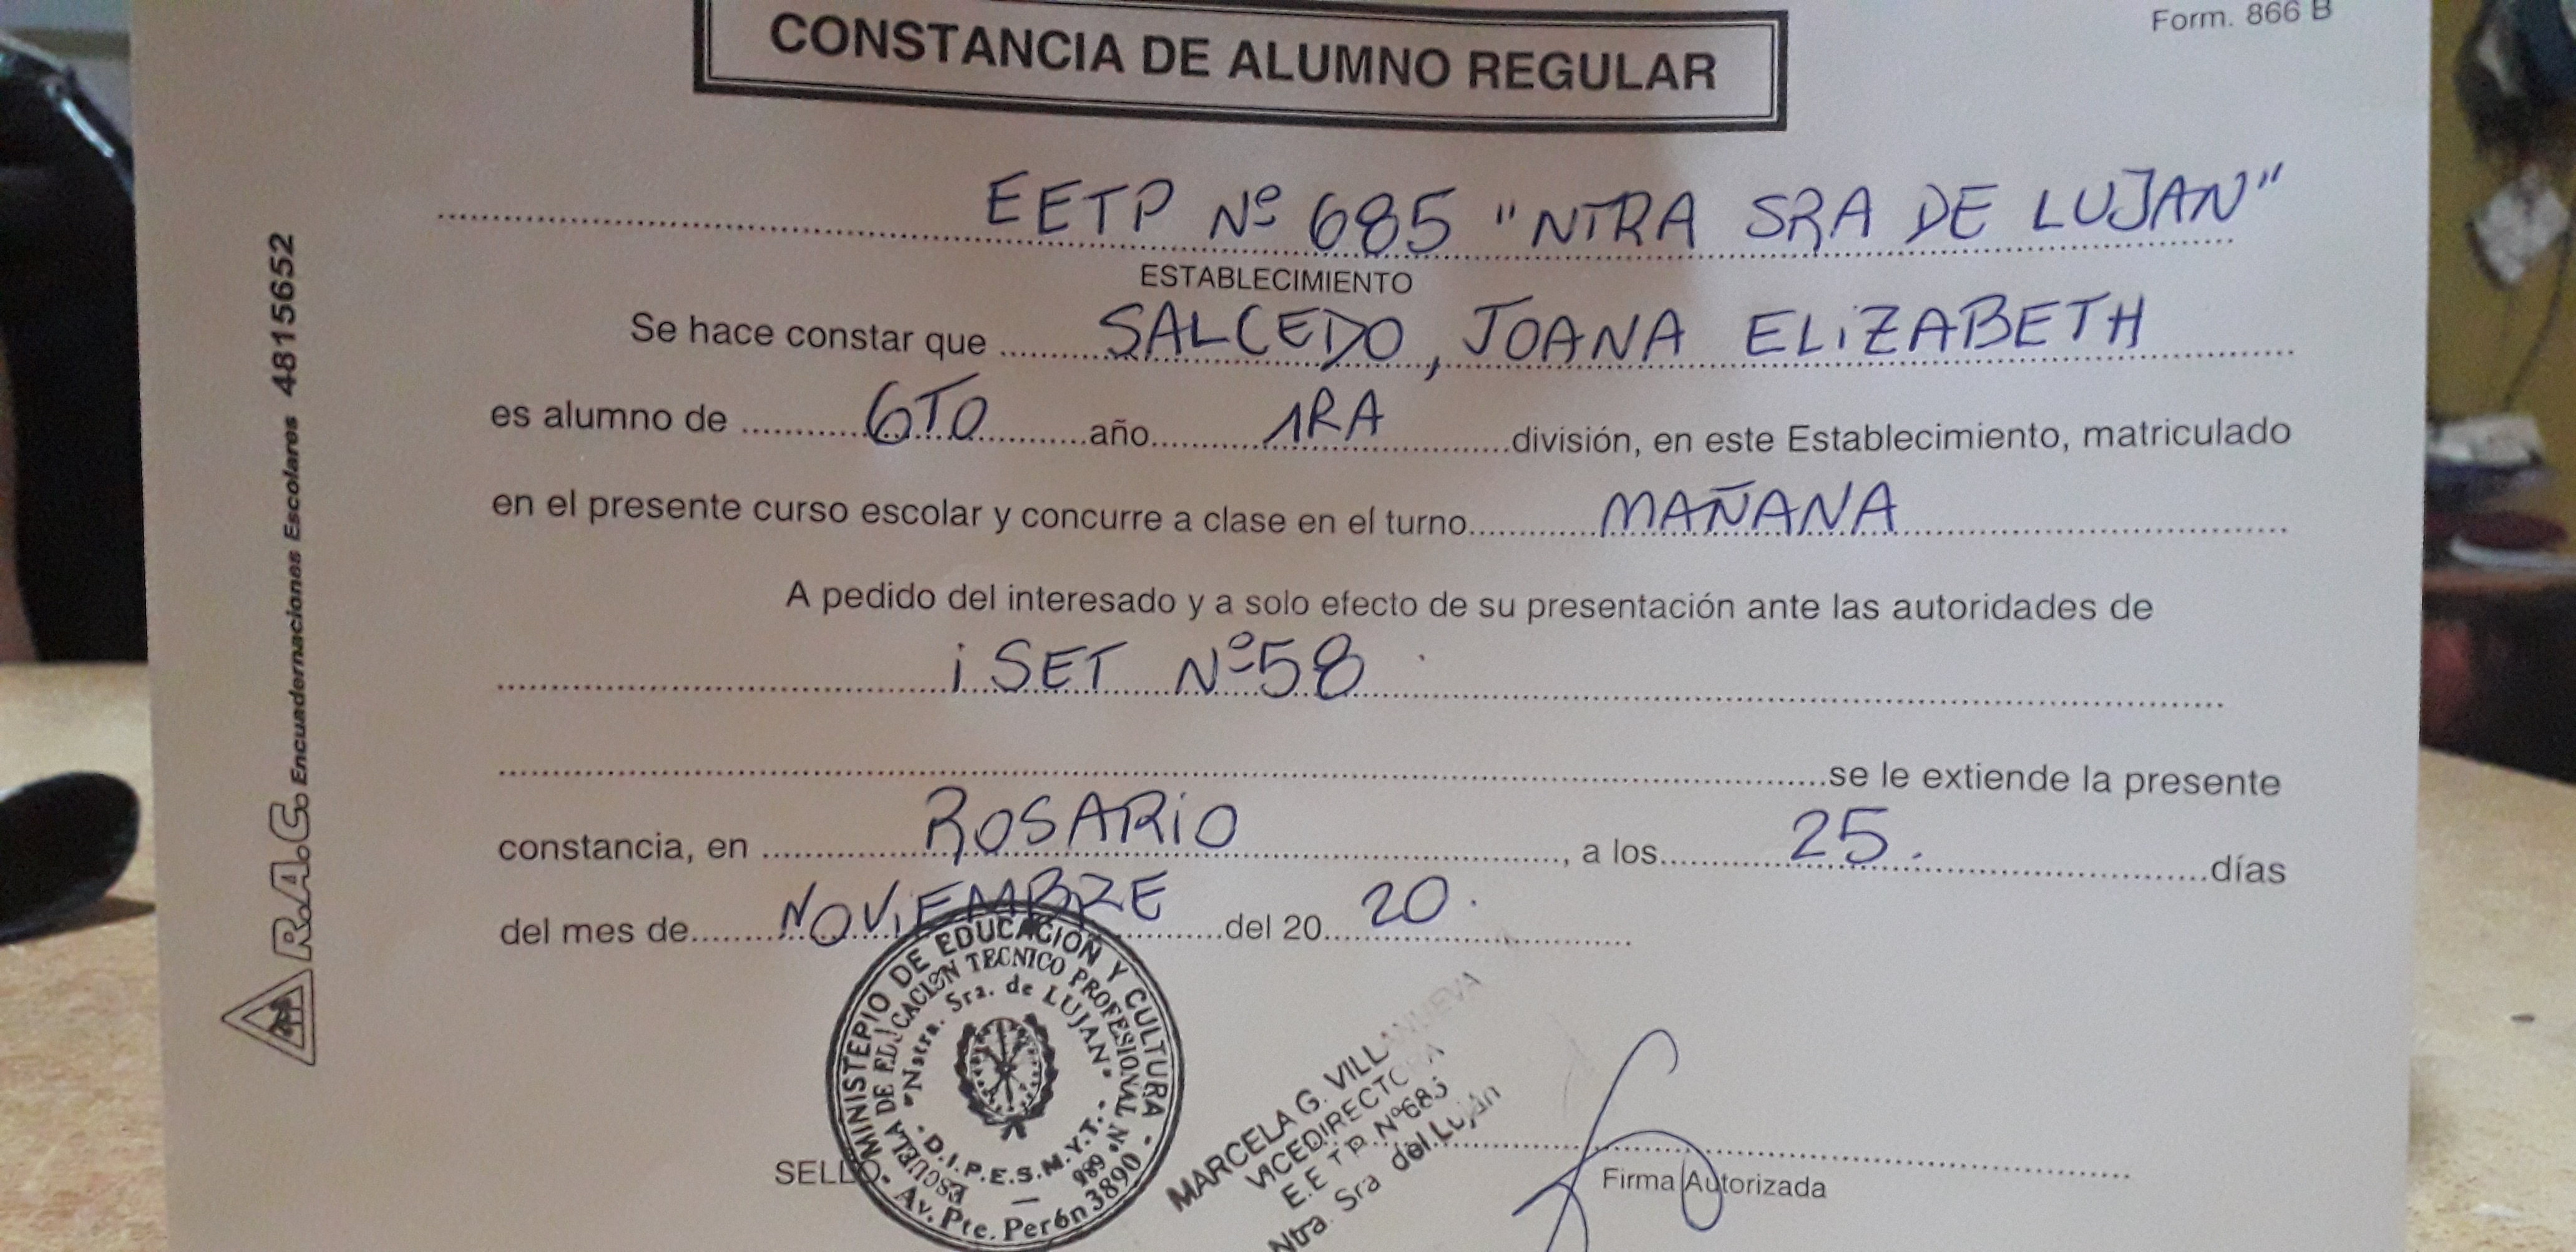 Form. 866 B
CONSTANCIA DE ALUMNO REGULAR
EETP Nº 685 "NTRA SRA DE LUJAN"
ESTABLECIMIENTO
Se hace constar que SALCEDO, JOANA ELIZABETH
es alumno de 6TO año 1RA división, en este Establecimiento, matriculado
en el presente curso escolar y concurre a clase en el turno MAÑANA
A pedido del interesado y a solo efecto de su presentación ante las autoridades de
iSET Nº58
se le extiende la presente
constancia, en ROSARIO, a los 25. días
del mes de NOVIEMBRE del 20 20.
SELLO
MINISTERIO DE EDUCACION Y CULTURA
ESCUELA DE EDUCACION TECNICO PROFESIONAL Nº 685
"Nstra. Sra. de LUJAN"
D.I.P.E.S.M.Y.T.
Av. Pte. Perón 3890
MARCELA G. VILLANUEVA
VICEDIRECTORA
E.E.T.P. Nº685
Ntra. Sra del Luján
Firma Autorizada
R.A.C. Encuadernaciones Escolares 4815652